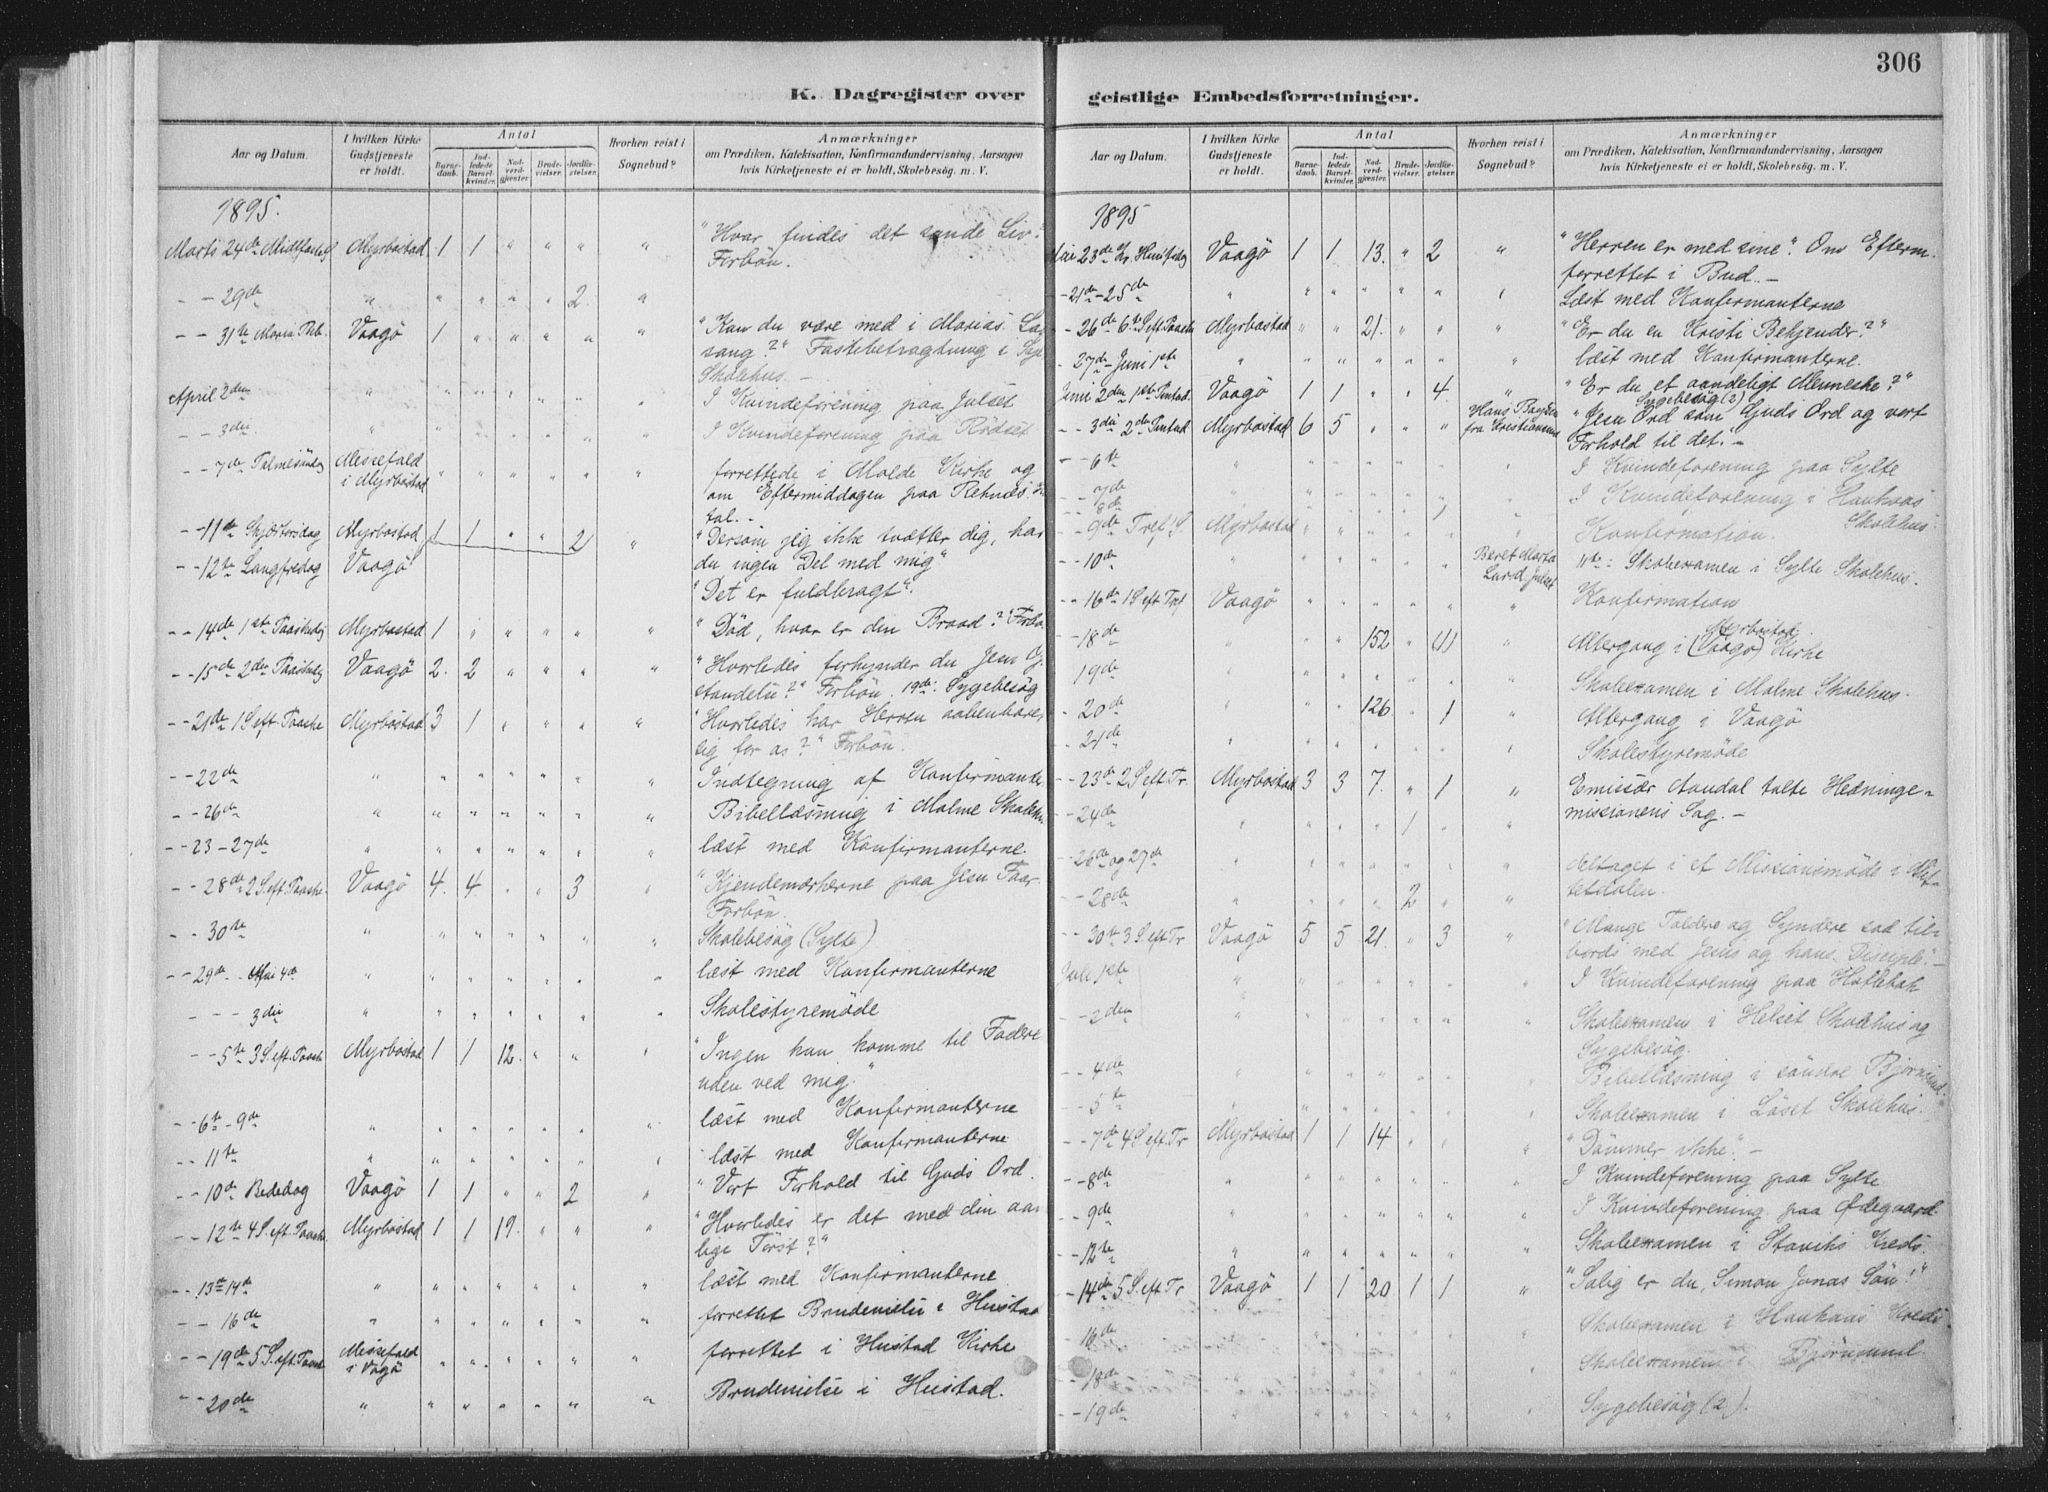 306
K. Dagregister over geistlige Embedsforretninger.
Aar og Datum. I hvilken Kirke Gudstjeneste er holdt. Antal Barnedaab. Indledede Barselkvinder. Nadverdgjæster. Brudevielser. Jordfæstelser. Hvorhen reist i Sognebud? Anmærkninger om Prædiken, Katekisation, Konfirmandundervisning, Aarsagen hvis Kirketjeneste ei er holdt, Skolebesøg. m. V.
1895.
Marts 24de Midtfaste Myrbostad 1 1 " " " " "Hvor findes det sande Liv?
Forbön.
- - 29de " " " " " 2. "
- - 31te Maria Beb. Vaagö 1 " " " " " "Kan du være med i Marias Lov
sang?" Fastebetragtning i
Skolehus. -
April 2den " " " " " " " I Kvindeforening paa Julset
- - 3die " " " " " " " I Kvindeforening paa Rödset
- - 7de Palmesöndag Messefald i Myrbostad " " " " " " forrettede i Molde Kirke og
om Eftermiddagen paa Retnæs
tal. -
- - 11te Skjærtorsdag Myrbostad 1 1 " " 2 " "Dersom jeg ikke tvætter dig, har
du ingen Del med mig"
- - 12te Langfredag Vaagö "Det er fuldbragt".
- - 14de 1ste Paaskedag Myrbostad 1 " " " " " "Död, hvor er din Braad?" Forbö
- - 15de 2den Paaskedag Vaagö 2. 2 " " " " "Hvorledes forkynder du Jesu Op
standelse?" Forbön. 19de: Sygebesög
- - 21de 1 S. eft. Paaske Myrbostad 3 1 " " " " "Hvorledes har Herren aabenbaret
sig for os?" Forbön.
- - 22de " " " " " " " Indtegning af Konfirmante
- - 26de " " " " " " " Bibellæsning i Malme Skolehu
- - 23 - 27de " " " " " " " læst med Konfirmanterne.
- - 28de 2 S. eft. Paaske. Vaagö 4. 4 " " 3 " "Kjendemærkerne paa Jesu Faar.
Forbön.
- - 30te " " " " " " " Skolebesög (Sylte)
- - 29de - Mai 4de " " " " " " " læst med Konfirmanterne
- - - 3die " " " " " " " Skolestyremöde
- - 5te 3 S. eft. Paaske Myrbostad 1 1 12. " " " "Ingen kan komme til Fadere
uden ved mig."
- - 6te - 9de " " " " " " " læst med Konfirmanterne
- - 11te " " " " " " " læst med Konfirmanterne
- - 10de Bededag Vaagö 1 1 " " 2 " "Vort Forhold til Guds Ord.
- - 12te 4 S. eft. Paaske. Myrbostad 1 1 19. " " " "Hvorledes er det med din aan
lige Törst?"
- - 13de 14de " " " " " " " læst med Konfirmanterne
- - 16de " " " " " " " forrettet Brudevielse i Hustad
- - 19de 5 S. eft. Paaske Messefald i Vagö " " " " " " forrettet i Hustad Kirke
- - 20de " " " " " " " Brudevielse i Hustad.
Aar og Datum. I hvilken Kirke Gudstjeneste er holdt. Antal Barnedaab. Indledede Barselkvinder. Nadverdgjæster. Brudevielser. Jordfæstelser. Hvorhen reist i Sognebud? Anmærkninger om Prædiken, Katekisation, Konfirmandundervisning, Aarsagen hvis Kirketjeneste ei er holdt, Skolebesøg. m. V.
1895
Mai 23de Kr. Himlfdg Vaagö 1 1 13. " 2 " "Herren er med sine". Om Efterm.
forrettet i Bud. -
- 21de - 25de " " " " " " " Læst med Konfirmanterne
- 26de 6te S. eft. Paaske Myrbostad " " 21. " " " "Er du en Kristi Bekjender?"
- 27de - Juni 1ste " " " " " " " læst med Konfirmanterne.
Juni 2den 1ste Pintsd. Vaagö 1 1 " " 4. " "Er du et aandeligt Menneske?"
Sygebesög (2)
- - 3die 2den Pintsd Myrbostad 6 5 " " " Hans fra Kristiansund "Jesu Ord som Guds Ord og vort
Forhold til det". -
- - 6te " " " " " " " I Kvindeforening paa Sylte
- - 7de " " " " " " " I Kvindeforening i Haukaas
- - 8de Skolehus.
- - 9de Tref. S. Myrbostad " " " " " Konfirmation.
- - 10de " " " " " " Beret Marta Larsd. Julset 11te: Skoleexamen i Sylte Skolehus.
- - 16de 1 S. eft Tref Vaagö " " " " " " Konfirmation
- - 18de " " " 152 " (1) " Altergang i (Vaagö) Myrbostad Kirke
19de " " " " " " " Skoleexamen i Malme Skolehus.
- - 20de " " " 126. " 1 " Altergang i Vaagö
- - 21de " " " " " " " Skolestyremöde
- - 23de 2 S. eft. Tr. Myrbostad 3 3 7. " 1 " Emissær Aandal talte Hedninge-
missionens Sag. -
- - 24de " " " " 1 " "
- - 26de og 27de " " " " " " " deltaget i et Missionsmöde i
tetdalen.
- - 28de " " " " 2 " "
- - 30te 3 S. eft Tr Vaagö 5 5 21. " 3 " "Mange Toldere og Syndere sad til-
bords med Jesus og hans Disciple". -
Juli 1ste " " " " " " " I Kvindeforening paa Hatlebak
- - 2den " " " " " " " Skoleexamen i Helset Skolehus og
Sygebesög.
- - 4de " " " " " " " Bibellæsning i söndre Björnsund.
- - 5te " " " " " " " Skoleexamen i Löset Skolehus.
- - 7de 4 S. eft. Tr Myrbostad 1 1 14 " " " "Dömmer ikke". -
- - 8de " " " " " " " I Kvindeforening paa Sylte
- - 9de " " " " " " " I Kvindeforening paa Ødegaard
- - 12te " " " " " " " Skoleexamen i Staviks Kreds.
- - 14de 5 S. eft Tr Vaagö 1 1 20 1 1 " "Salig er du, Simon Jonas Sön!"
- - 16de " " " " " " " Skoleexamen i Haukaas Kreds.
- - 18de " " " " " " " Skoleexamen i Björnsund.
- - 19de " " " " " " " Sygebesög (2).